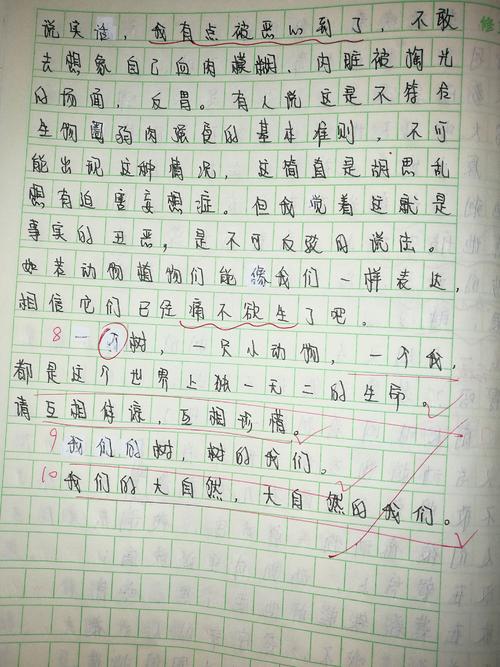 说实话，我有点被恶心到了，不敢
去想象自己血肉模糊、内脏被掏光
的场面，反胃。有人说这是不符合
生物圈弱肉强食的基本准则，不可
能出现这种情况，这简直是胡思乱
想有迫害妄想症。但我觉着这就是
事实的丑恶，是不可反驳的说法。
如若动物植物们能像我们一样表达，
相信它们已经痛不欲生了吧。
8 一个树，一只小动物，一个我，
都是这个世界上独一无二的生命。
请互相体谅，互相珍惜。
9 我们的树，树的我们。
10 我们的大自然，大自然的我们。
修